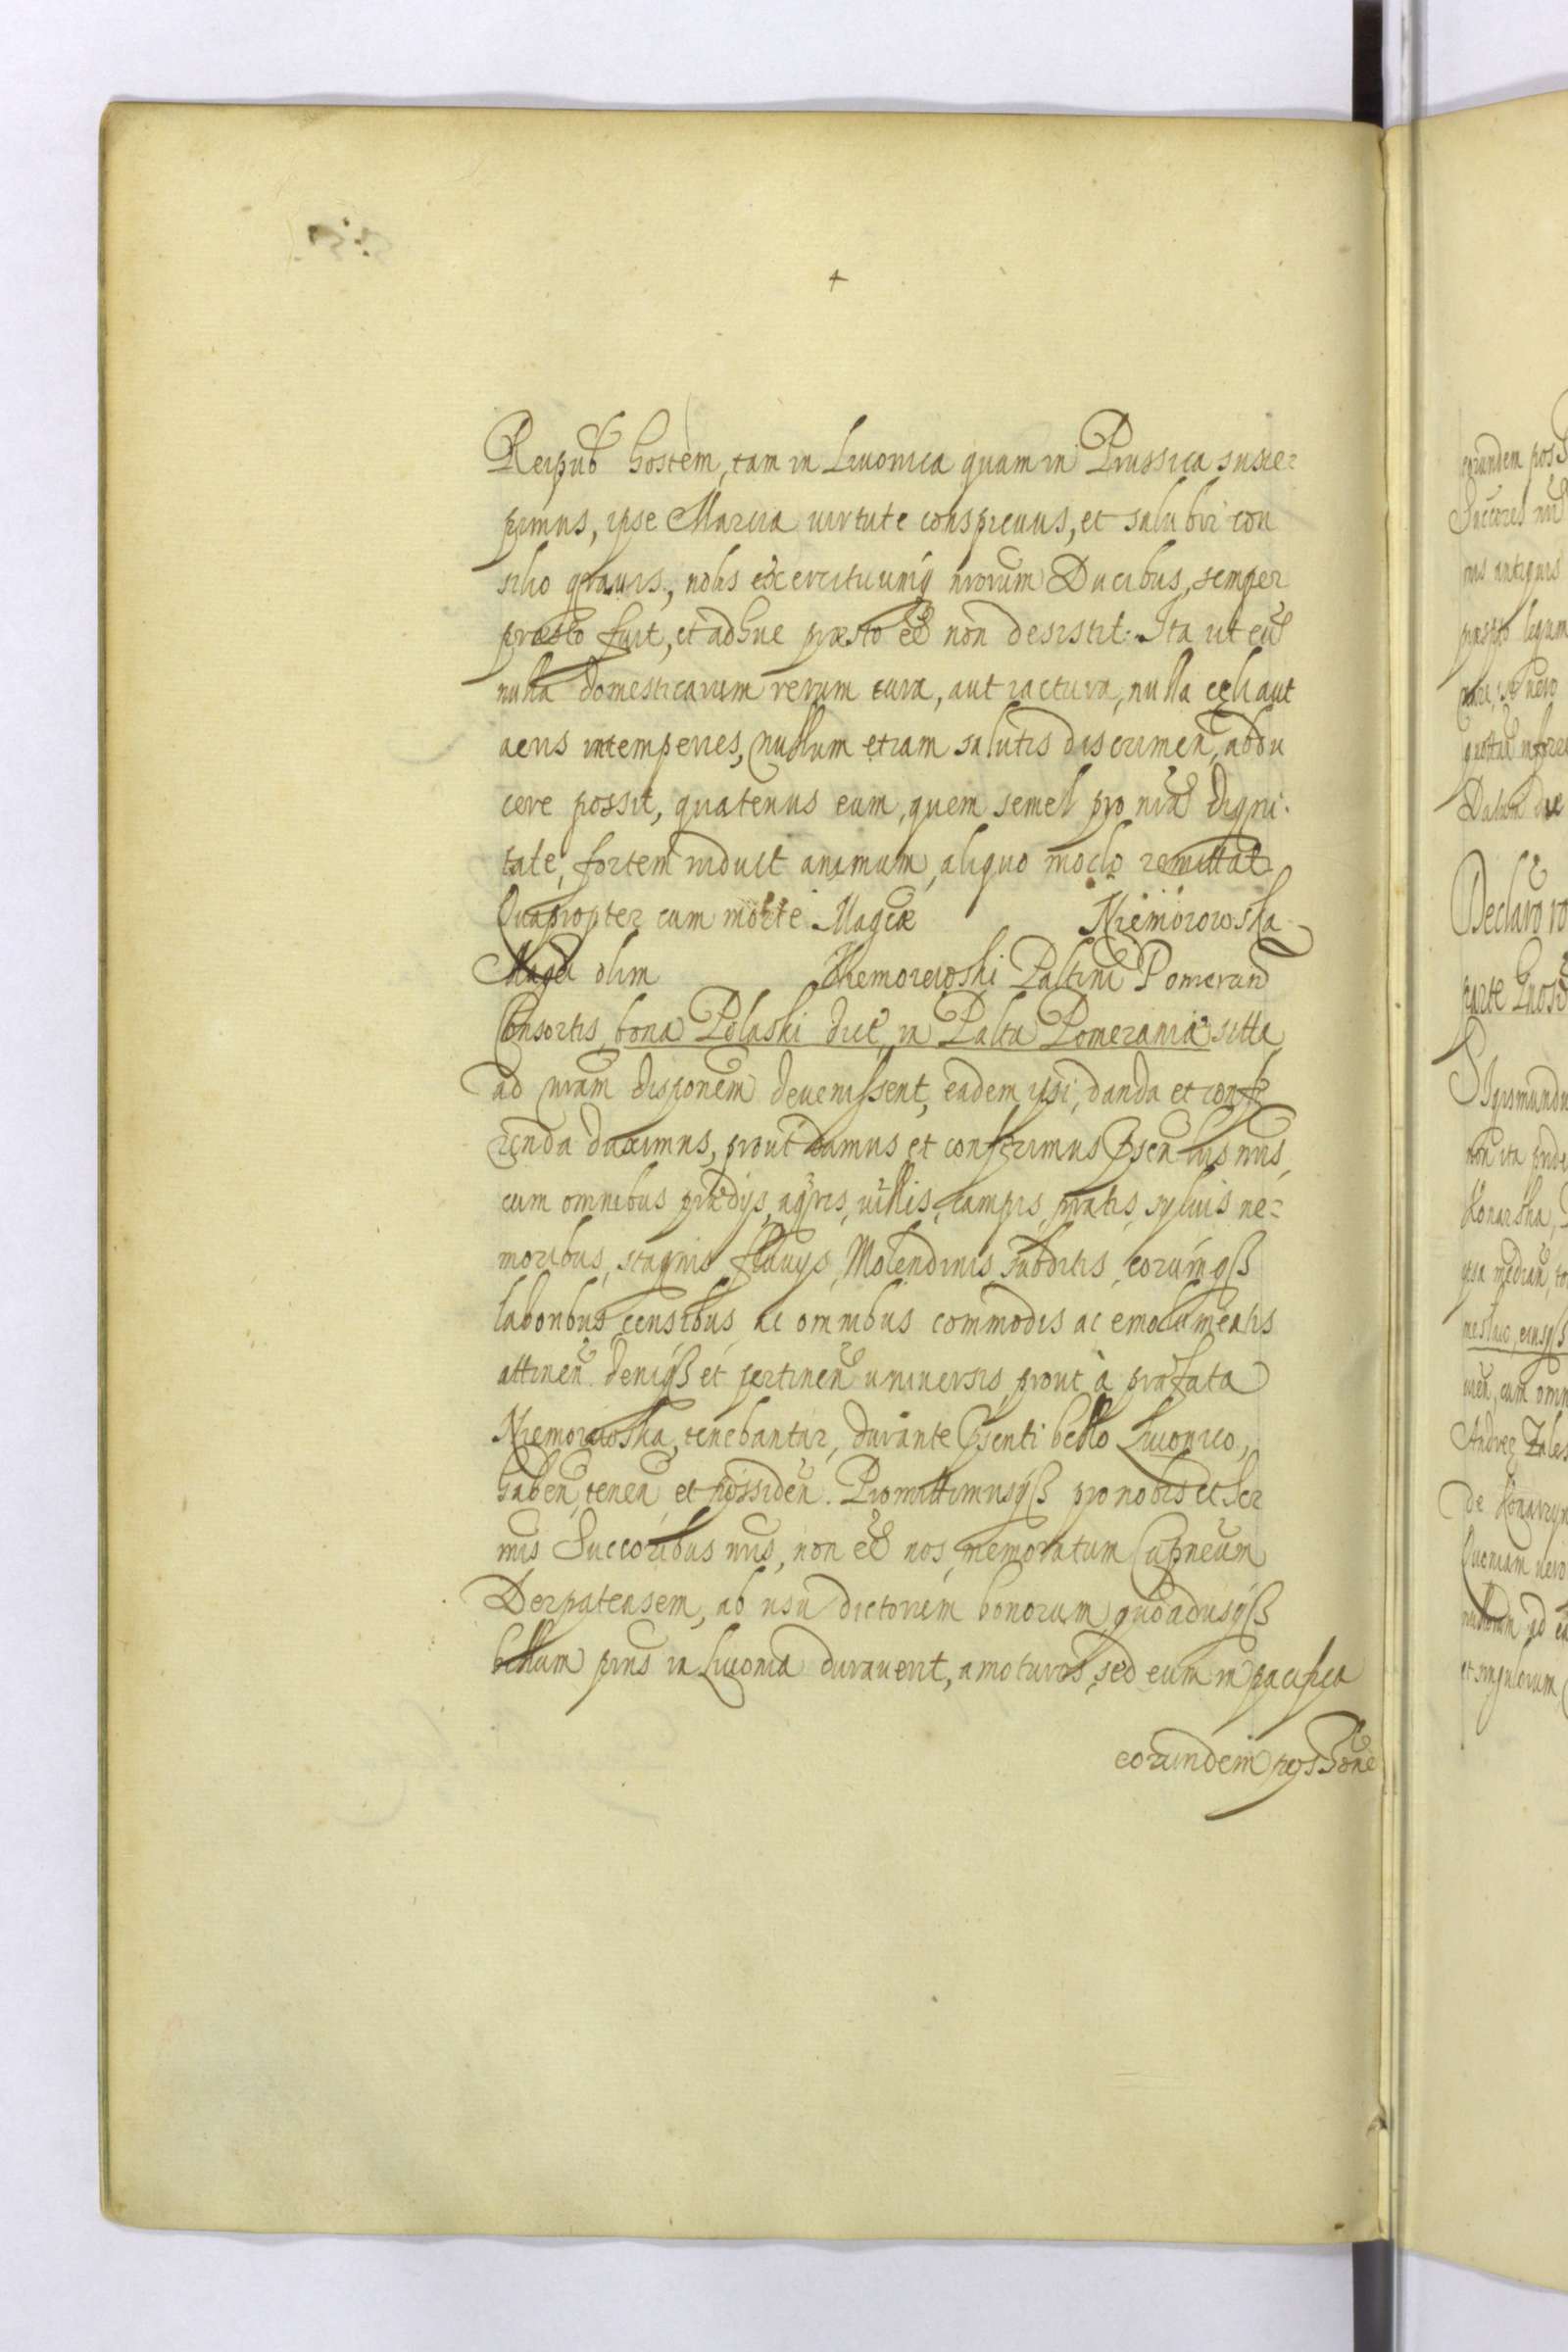 +
Reipub hostem, tam in Livonica quam in Prussica susce=
pimus, ipse Marcia virtute conspicuus, et salubri con
silio gravis, nobis exercituumq nrorum Ducibus, semper
præsto fuit, et adhuc præsto eē non desistit. Ita ut eū
nulla domesticarum rerum cura, aut iactura, nulla cęli aut
aeris intemperies, nullum etiam salutis discrimen, abdu
cere possit, quatenus eum, quem semel pro nrā digni-
tate, fortem induit animum, aliquo modo remittat.
Quapropter cum morte Magcæ Niemoiowska
Magci olim Niemoiewski Paltini Pomeran
Consortis, bona Polaski dict, in Paltu Pomeraniæ sitta
ad nram disponem devenissent, eadem ipsi, danda et confe
renda duximus, prout damus et conferimus Psen lris nris,
cum omnibus prædijs, agris, villis, campis, pratis, sylvis ne=
moribus, stagnis fluvijs, Molendinis, subditis, eorumqß
laboribus, censibus, ac omnibus commodis ac emolumentis
attinen deniqß et pertinen universis, prout à præfata
Niemoiowska, tenebantur, durante Psenti bello Livonico,
haben, tenen et possiden. Promittimusqß pro nobis et Ser
mis Succoribus nris, non eē nos, memoratum Capneum
Derpatensem, ab usu dictorum bonorum, quoadusqß
bellum pns in Livonia duraverit, amoturos, sed eum in pacifica
eorundem possone
eorundem poss
Succores nr
antiquis
Datum
Declaro
parte
Sigismundu
non ita pride
Konarska,
Andreę Zales
de Konarzyn
Quoniam vero
et singulorum